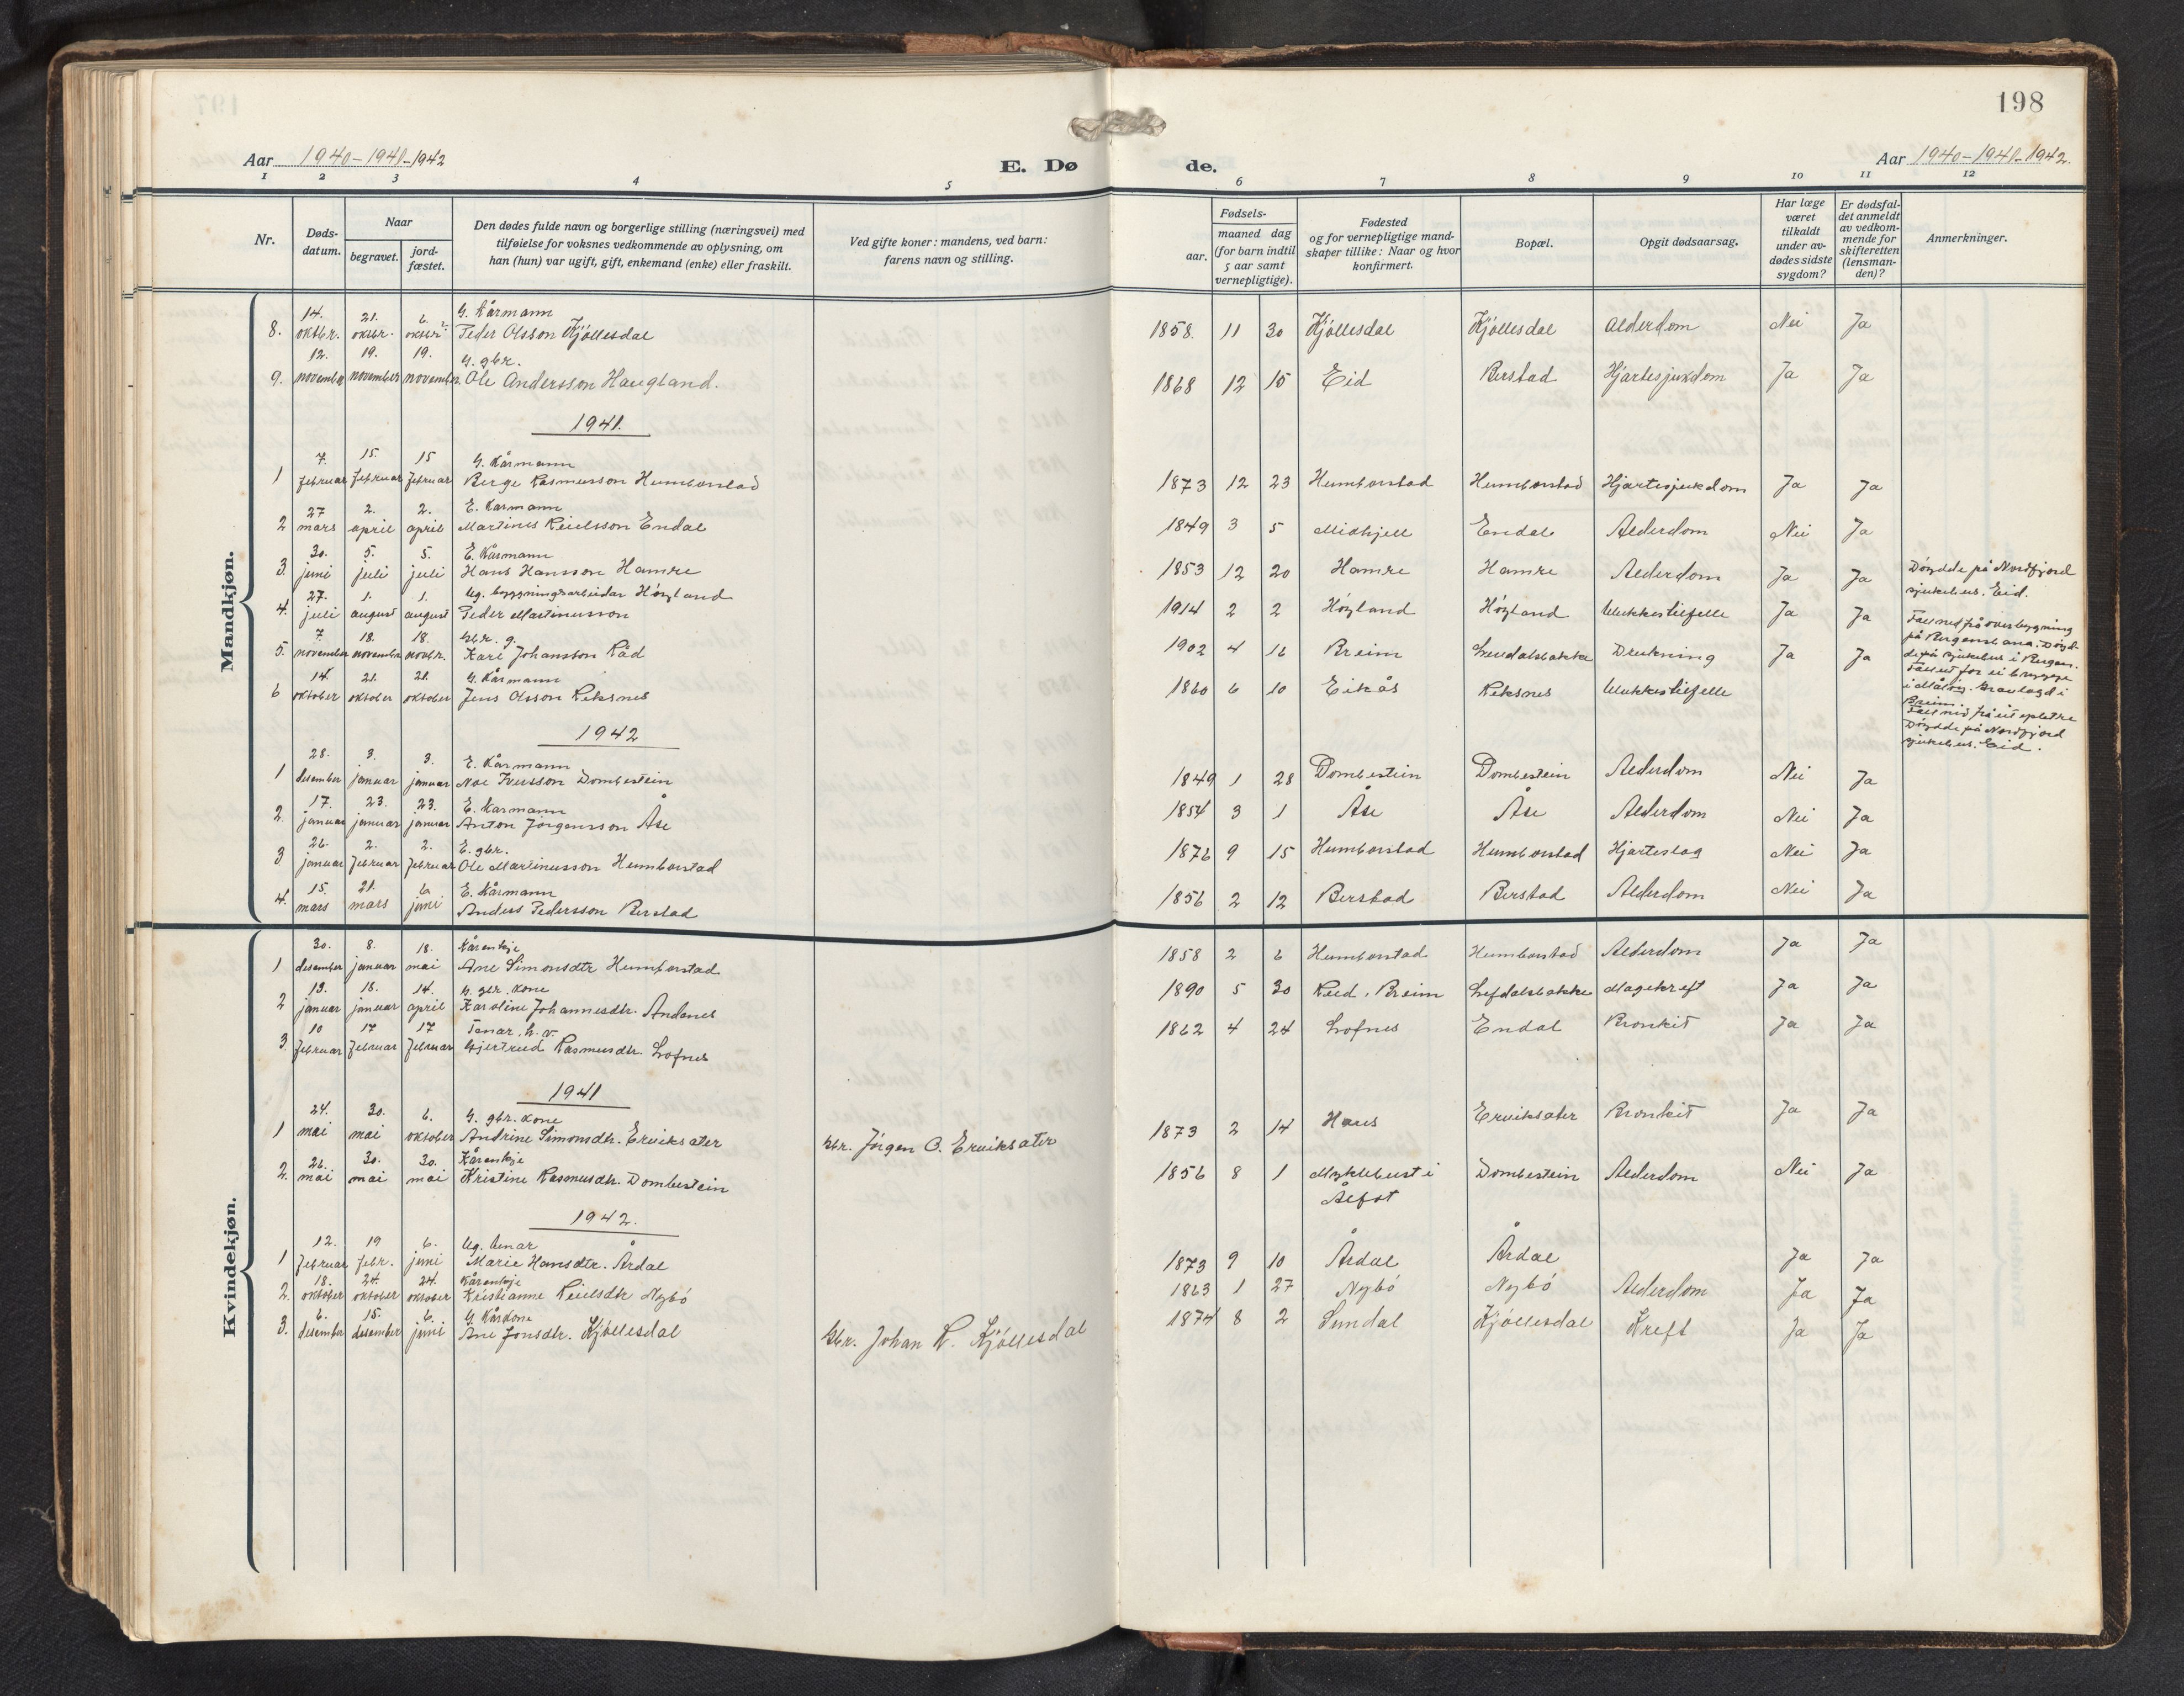 198
Aar 1940-1941-1942
E. Dø de.
Aar 1940-1941-1942.
1 2 3 4 5 6 7 8 9 10 11 12
Nr.
Døds-
datum.
Naar
begravet.
jord-
fæstet.
Den dødes fulde navn og borgerlige stilling (næringsvei) med
tilføielse for voksnes vedkommende av oplysning, om
han (hun) var ugift, gift, enkemand (enke) eller fraskilt.
Ved gifte koner: mandens, ved barn:
farens navn og stilling.
Fødsels-
aar.
maaned dag
(for barn indtil
5 aar samt
vernepligtige).
Fødested
og for vernepligtige mand-
skaper tillike: Naar og hvor
konfirmert.
Bopæl.
Opgit dødsaarsag.
Har læge
været
tilkaldt
under av-
dødes sidste
sygdom?
Er dødsfal-
det anmeldt
av vedkom-
mende for
skifteretten
(lensman-
den)?
Anmerkninger.
Mandkjøn.
14. 21. 6. G. Kårmann
8. oktbr. oktbr. oktbr. Peder Olsson Kjöllesdal 1858. 11 30 Kjöllesdal Kjöllesdal Alderdom Nei Ja
12. 19. 19. G. gbr.
9. november november november. Ole Andersson Haugland. 1868 12 15 Eid Berstad Hjartesjukdom Ja Ja
1941.
7. 15. 15 G. Kårmann
1 februar februar februar Berge Rasmusson Humborstad 1873 12 23 Humborstad Humborstad Hjartesjukdom Ja Ja
27 2. 2. E. Kårmann
2 mars april april Martinus Reielsson Endal 1849 3 5 Midhjell Endal Alderdom Nei Ja
30. 5. 5. E. Kårmann
3. juni juli juli Hans Hansson Hamre 1853 12 20 Hamre Hamre Alderdom Ja Ja Döydde på Nordfjord
sjukehus, Eid.
27. 1. 1. Ug. bygningsarbeidar Höyland
4. juli august august Peder Martinusson 1914 2 2 Höyland Höyland Ulukkestilfelle Ja Ja Fall ned frå overbygning
på Bergensbana. Döyd-
de på sjukehus i Bergen.
7. 18. 18. Gbr. g.
5. november november novbr. Karl Johansson Råd 1902 4 16 Breim Drukning Ja Ja Fall ut for ei bryggje
i Måløy. Gravlagd i
Breim.
14. 21. 21. G. Kårmann
6 oktober oktober oktober Jens Olsson Reksnes 1860 6 10 Eikås Reksnes Ulukkestilfelle Fall ned frå eit epletre
Döydde på Nordfjord
sjukehus. Eid.
1942
28. 3. 3. E. Kårmann
1 desember januar januar Noe Iversson Dombestein 1849 1 28 Dombestein Dombestein Alderdom Nei Ja
17. 23. 23. E. Kårmann
2. januar januar januar Anton Jörgensson Åse 1854 3 1 Åse Åse Alderdom Nei Ja
26. 2. 2. E. gbr.
3 januar februar februar Ole Martinusson Humborstad 1876 9 15 Humborstad Humborstad Hjarteslag Nei Ja
15. 21. 6 E. Kårmann
4. mars mars juni Anders Pedersson Berstad 1856 2 12 Berstad Berstad Alderdom Nei Ja
Kvindekjøn.
30. 8. 18. Kårenkje
1 desember januar mai Ane Simonsdtr Humborstad 1858 2 6 Humborstad Humborstad Alderdom Ja Ja
13. 18. 14. G. gbr. kone
2 januar januar april Karoline Johannesdtr. Andenes 1890 5 30 Reed, Breim Lefdalsbakke Magekreft Ja Ja
10 17 17 Tenar, h.v.
3. februar februar februar Gjertrud Rasmusdtr. Lofnes 1862 4 24 Lofnes Endal Bronkit Ja Ja
1941
24. 30. 6. G. gbr. kone
1 mai mai oktober Andrine Simonsdtr. Erviksæter Gbr. Jörgen O. Erviksæter 1873 2 14 Haus Erviksæter Bronkit Ja Ja
26. 30. 30. Kårenkje
2. mai mai mai Kristine Rasmusdtr. Dombestein 1856 8 1 Myklebust i Dombestein Alderdom Nei Ja
Ålfot
1942.
12. 19 6. Ug. tenar
1 februar febr. juni Marie Hansdtr. Årdal 1873 9 10 Årdal Årdal Ja Ja
18. 24. 24. Kårenkje
2. oktober oktober oktober Kristianne Reielsdtr Nybö 1863 1 27 Nybö Nybö Alderdom Ja Ja
6. 15. 6. G. Kårkone
3. desember desember juni Ane Jonsdtr. Kjöllesdal Gbr. Johan R. Kjöllesdal 1874 8 2 Sundal Kjöllesdal Kreft Ja Ja